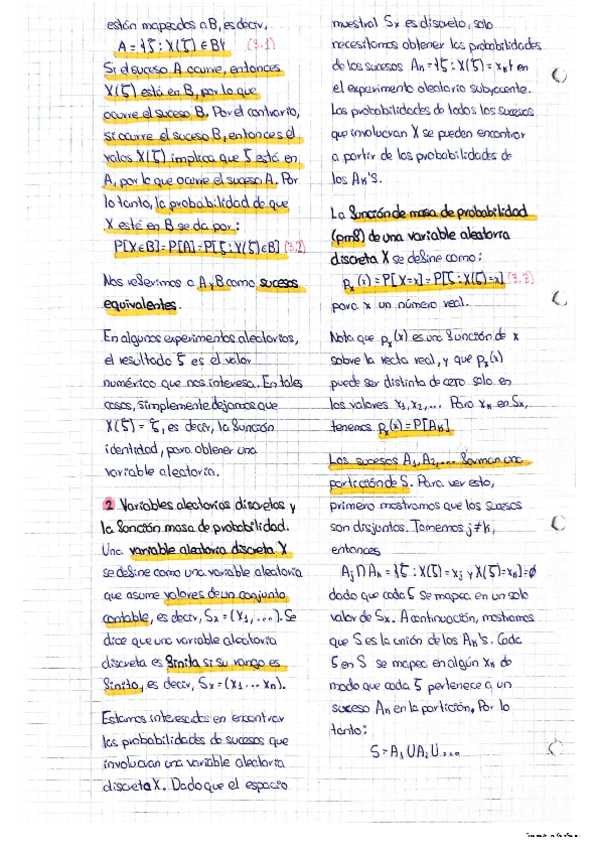 están mapeados a B, es decir,
A = {ζ : X(ζ) ∈ B} (3.1)
Si el suceso A ocurre, entonces
X(ζ) está en B, por lo que
ocurre el suceso B. Por el contrario,
si ocurre el suceso B, entonces el
valor X(ζ) implica que ζ está en
A, por lo que ocurre el suceso A. Por
lo tanto, la probabilidad de que
X esté en B se da por:
P[X∈B]=P[A]=P[ζ:X(ζ)∈B] (3.2)
Nos referimos a A y B como sucesos
equivalentes.
En algunos experimentos aleatorios,
el resultado ζ es el valor
numérico que nos interesa. En tales
casos, simplemente dejamos que
X(ζ) = ζ, es decir, la función
identidad, para obtener una
variable aleatoria.
2 Variables aleatorias discretas y
la función masa de probabilidad.
Una variable aleatoria discreta X
se define como una variable aleatoria
que asume valores de un conjunto
contable, es decir, Sx = (x₁,...). Se
dice que una variable aleatoria
discreta es finita si su rango es
finito, es decir, Sx = (x₁...xn).
Estamos interesados en encontrar
las probabilidades de sucesos que
involucran una variable aleatoria
discreta X. Dado que el espacio
muestral Sx es discreto, solo
necesitamos obtener las probabilidades
de los sucesos Ak = {ζ : X(ζ) = xk} en
el experimento aleatorio subyacente.
Las probabilidades de todos los sucesos
que involucran X se pueden encontrar
a partir de las probabilidades de
los Ak's.
La función de masa de probabilidad
(pmf) de una variable aleatoria
discreta X se define como:
px(x) = P[X=x] = P[ζ:X(ζ)=x] (3.3)
para x un número real.
Nota que px(x) es una función de x
sobre la recta real, y que px(x)
puede ser distinta de cero solo en
los valores x₁, x₂,... Para xk en Sx,
tenemos px(x) = P[Ak]
Los sucesos A₁, A₂,... forman una
partición de S. Para ver esto,
primero mostramos que los sucesos
son disjuntos. Tomemos j≠k,
entonces
Aj∩Ak = {ζ : X(ζ)=xj y X(ζ)=xk}=ø
dado que cada ζ se mapea en un solo
valor de Sx. A continuación, mostramos
que S es la unión de los Ak's. Cada
ζ en S se mapea en algún xk de
modo que cada ζ pertenece a un
suceso Ak en la partición. Por lo
tanto:
S = A₁ U A₂ U ...